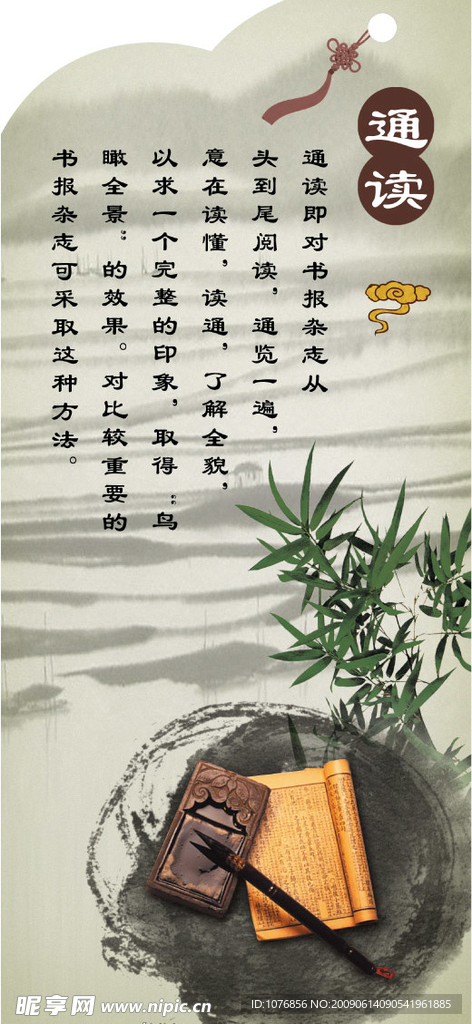 通读
通读即对书报杂志从
头到尾阅读，通览一遍，
意在读懂，读通，了解全貌，
以求一个完整的印象，取得“鸟
瞰全景”的效果。对比较重要的
书报杂志可采取这种方法。
昵享网 www.nipic.cn
ID:1076856 NO:20090614090541961885